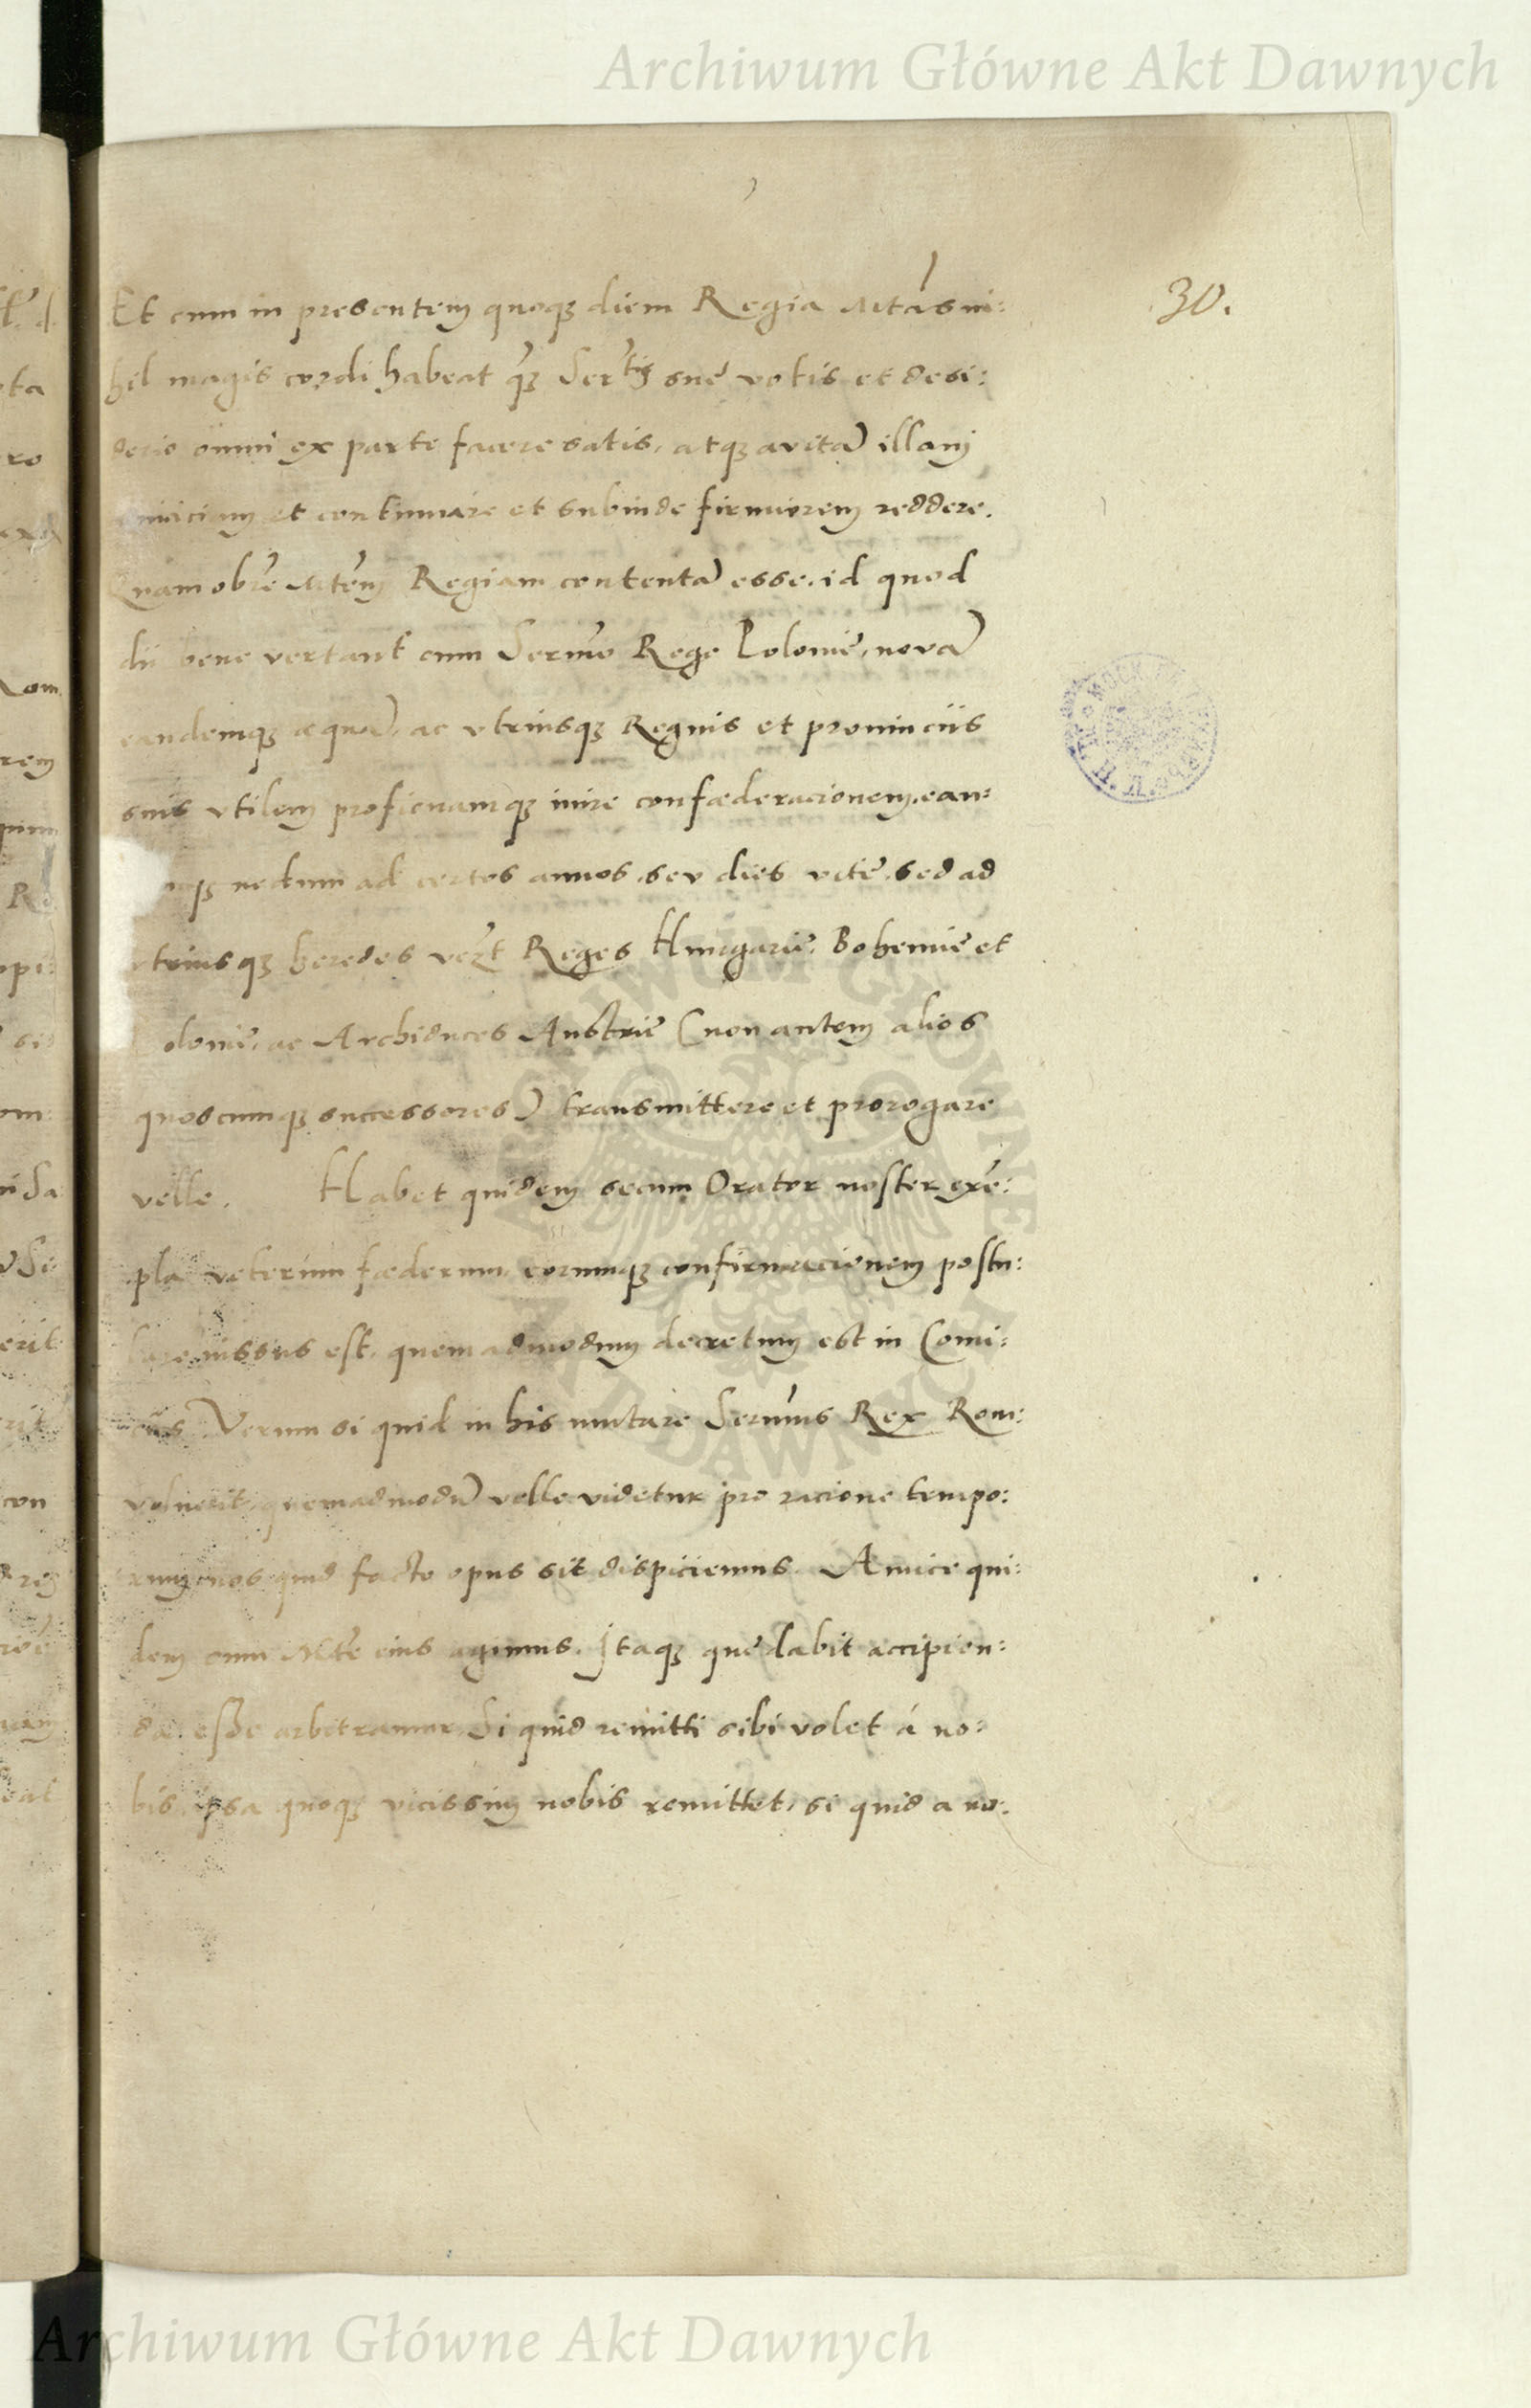 Archiwum Główne Akt Dawnych
30.
Et cum in presentem quoqꝫ diem Regia Mtás ni:
hil magis cordi habeat qꝫ Sertis sue votis et desi:
derio omni ex parte facere satis, atqꝫ avitā illam
amiciciam et continuare et subinde firmiorem reddere.
Quam obrē Mtem Regiam contentā esse, id quod
dii bene vertant cum Sermo Rege Polonie, novā
eandemqꝫ æquā, ac vtriusqꝫ Regnis et prouinciis
suis vtilem proficuamqꝫ inire confæderacionem, ean:
mqꝫ nedum ad certos annos, seu dies vite, sed ad
vtriusqꝫ heredes vezt Reges Hungarie, Bohemie et
olonie, ac Archiduces Austrie (non autem alios
quoscumqꝫ successores) transmittere et prorogare
velle. Habet quidem secum Orator noster exē:
pla veterum fæderum, eorumqꝫ confirmacionem postu:
lare iussus est, quemadmodum decretum est in Comi:
ciis Verum si quid in his mutare Sermus Rex Rom:
voluerit, quemadmodū velle videtur pro racione tempo:
rum, nos quid facto opus sit dispiciemus. Amice qui:
dem cum Mte eius agimus. Itaqꝫ que dabit accipien:
da esse arbitramur, Si quid remitti sibi volet á no:
bis, ipsa quoqꝫ vicissim nobis remittet, si quid a no:
ARCHIWUM GŁÓWNE
AKT DAWNYCH
Archiwum Główne Akt Dawnych